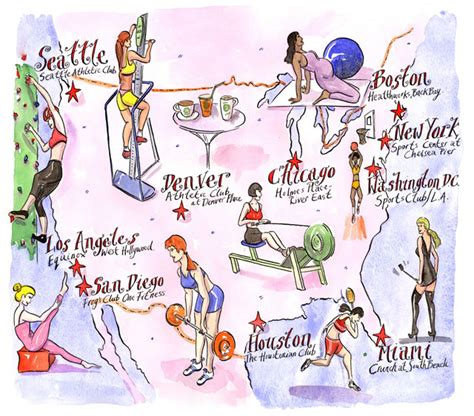 Seattle
Seattle Athletic Club
Boston
Healthworks, Back Bay
New York
Sports Center at
Chelsea Pier
Washington D.C.
Sports Club/L.A.
Chicago
Holmes Place
River East
Denver
Athletic Club
at Denver Place
Los Angeles
Equinox West Hollywood
San Diego
Frog's Club One Fitness
Houston
The Houstonian Club
Miami
Crunch at South Beach